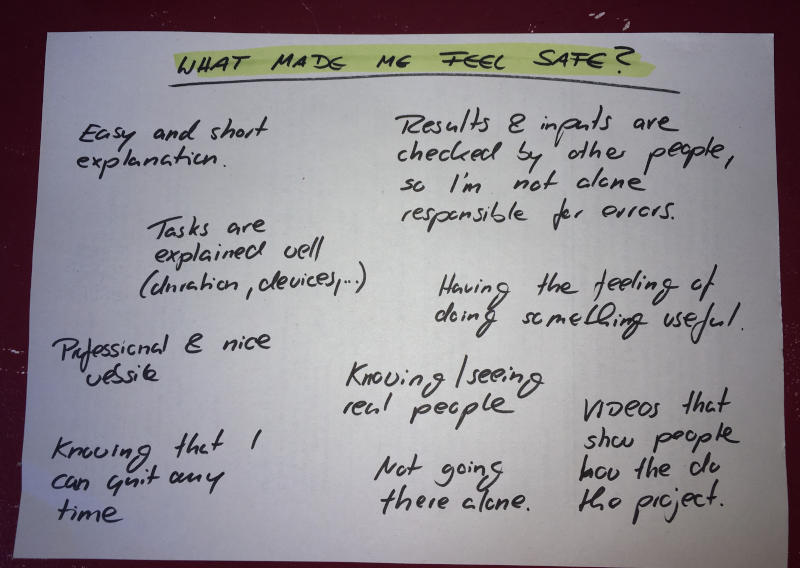 WHAT MADE ME FEEL SAFE?
Easy and short
explanation.
Results & inputs are
checked by other people,
so I'm not alone
responsible for errors.
Tasks are
explained well
(duration, devices,...)
Having the feeling of
doing something useful.
Professional & nice
website
Knowing/seeing
real people
VIDEOS that
show people
how the do
the project.
Knowing that I
can quit any
time
Not going
there alone.